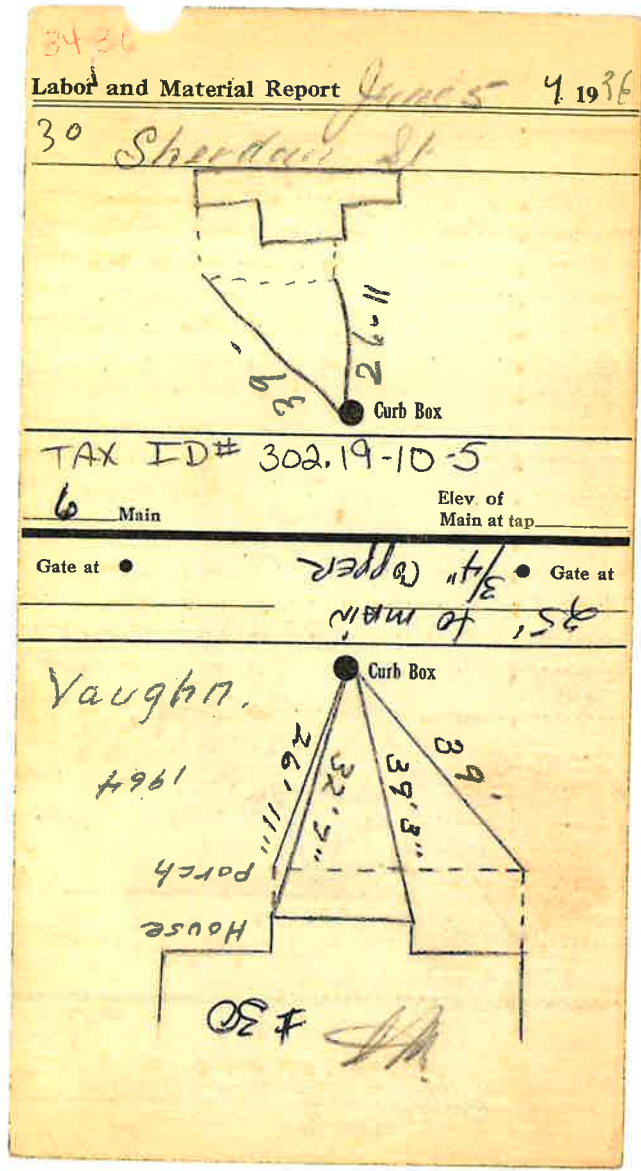 34-36
Labor and Material Report June 5 4 1936
30 Sherdan St
39'
26-11
Curb Box
TAX ID# 302.19-10-5
6 Main
Elev. of
Main at tap
Gate at
3/4" COPPER
Gate at
25' to MAIN
Curb Box
Vaughn.
26' 11"
32' 7"
39' 3"
39'
1964
Porch
House
#30